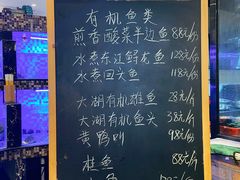 有机鱼类
煎香酸菜半边鱼 88元/份
水煮东江鲜龙鱼 128元/份
水煮回头鱼 118元/份
大湖有机雄鱼 28元/斤
大湖有机鱼头 38元/斤
黄鸭叫 98元/份
桂鱼 88元/斤